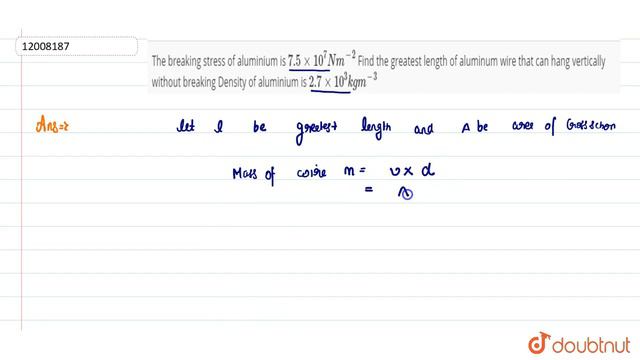 12008187
The breaking stress of aluminium is 7.5 × 10⁷ Nm⁻² Find the greatest length of aluminum wire that can hang vertically
without breaking Density of aluminium is 2.7 × 10³ kgm⁻³
Ans⇒ let l be greatest length and A be area of Crossection
Mass of wire m = v × d
= A
doubtnut